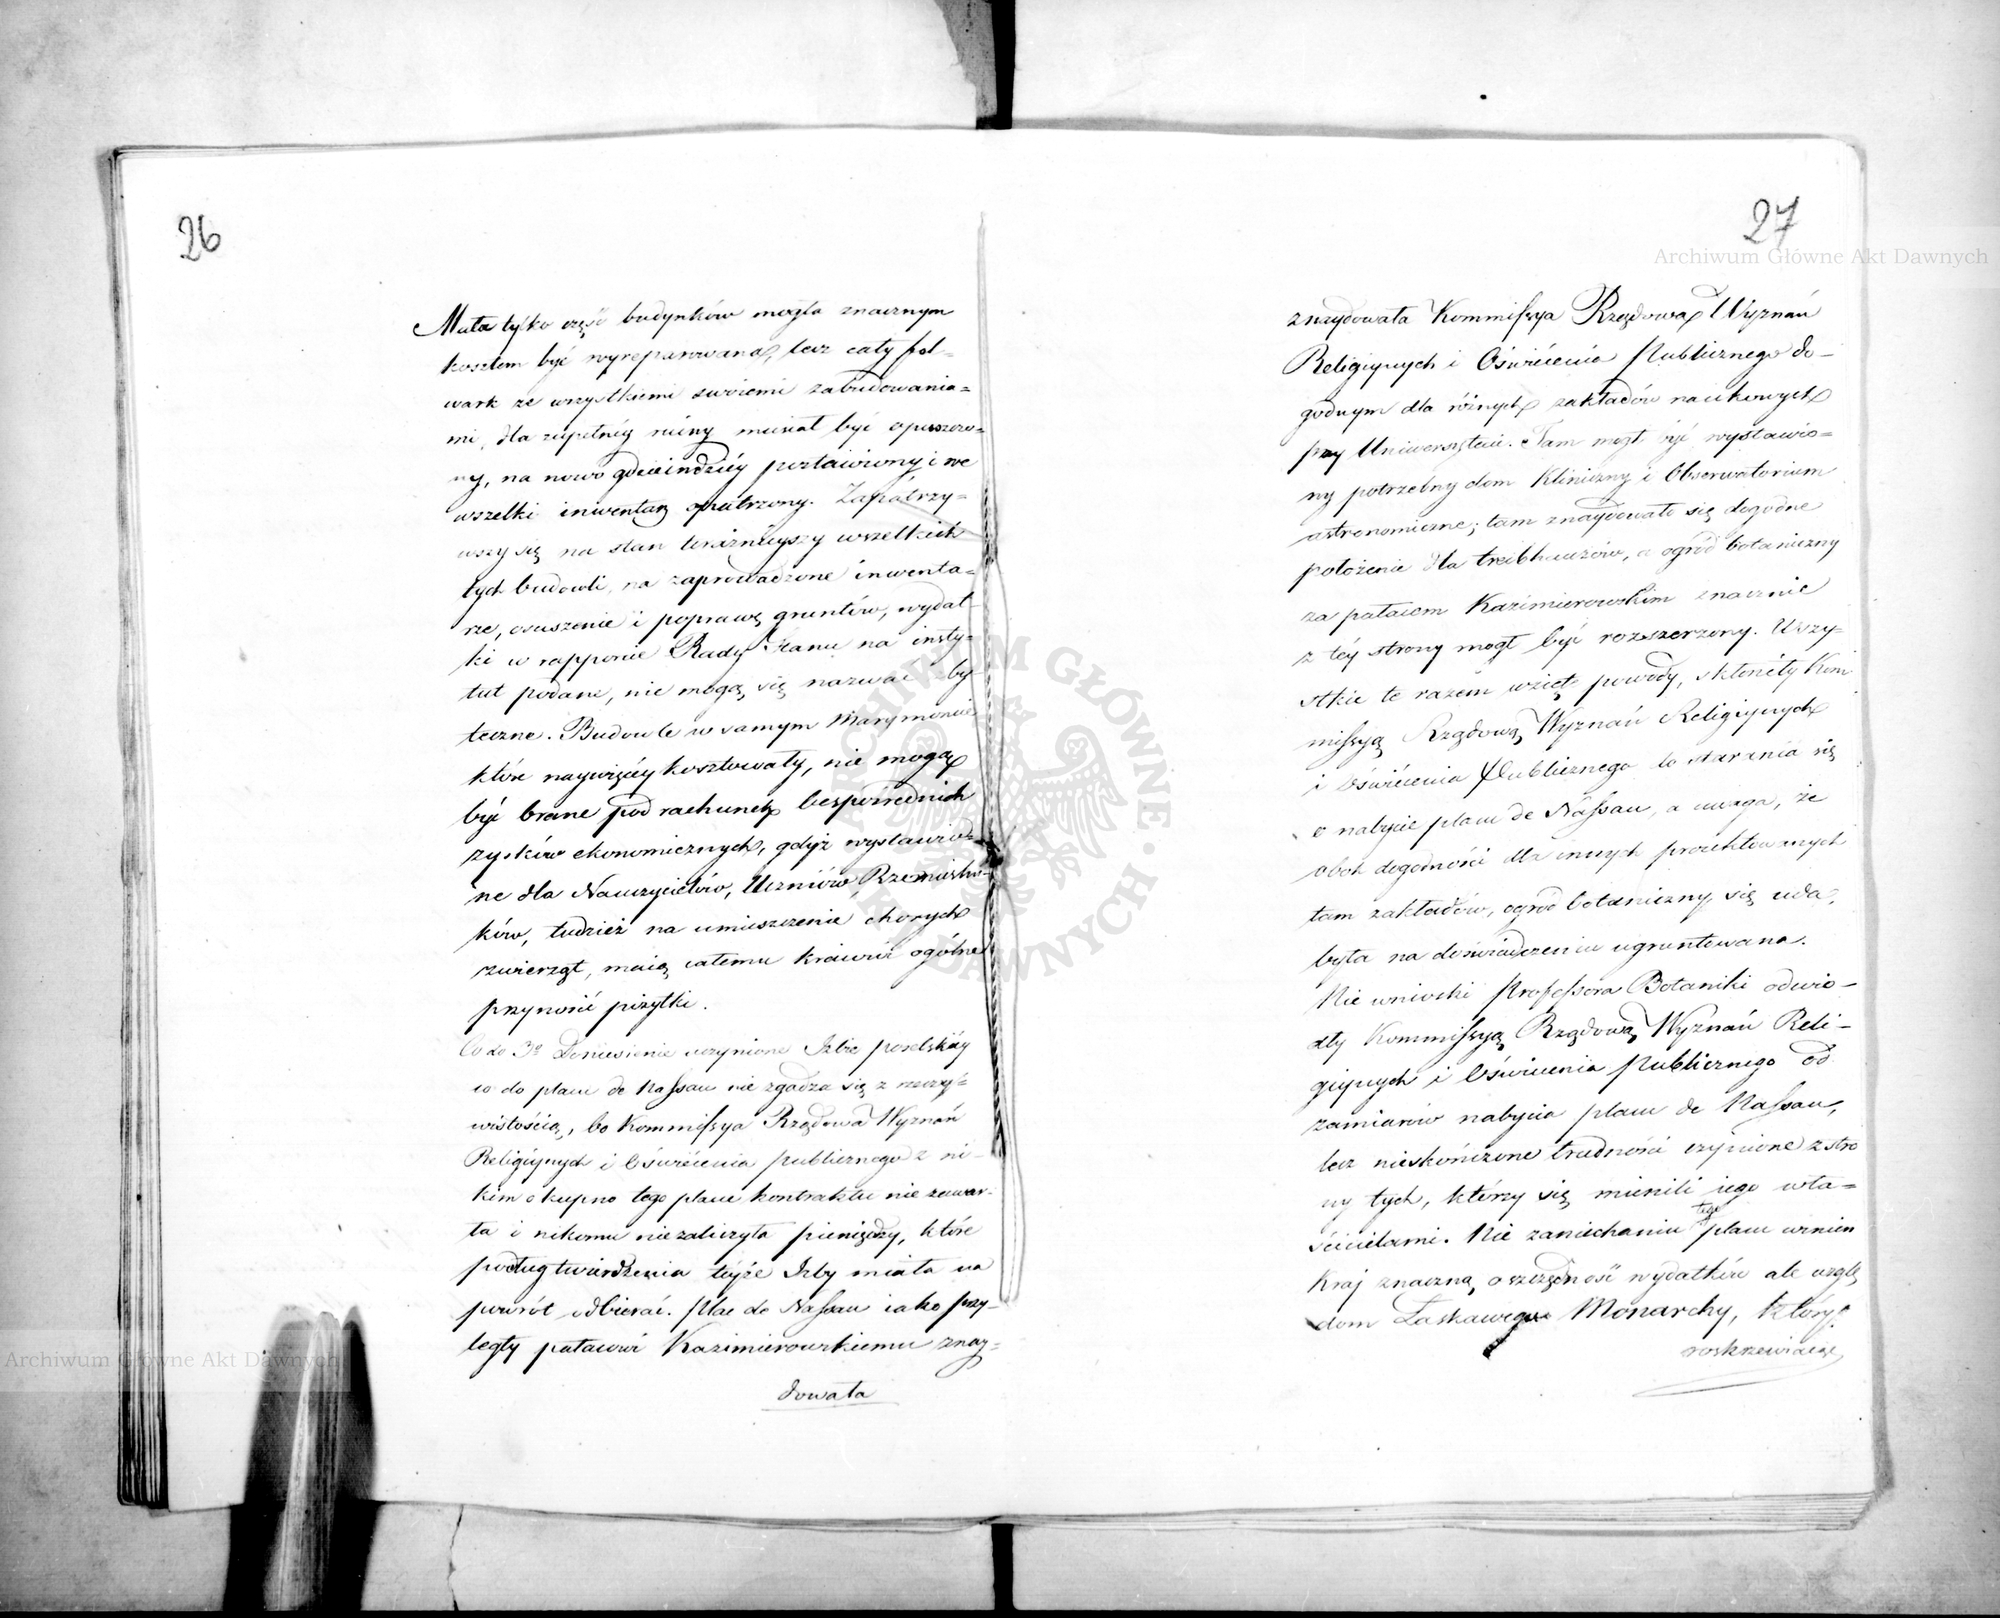 26
Mała tylko część budynków mogła znacznym
kosztem być wyreparowana, lecz cały fol-
wark ze wszystkiemi swoiemi zabudowania-
mi, dla zupełnéy ruiny musiał być opuszczo-
ny, na nowo gdzieindziéy postawiony i we
wszelki inwentarz opatrzony. Zapatrzy-
wszy się na stan teraźnieyszy wszelkich
tych budowli, na zaprowadzone inwenta-
rze, osuszenie i poprawę gruntów, wydat-
ki w rapporcie Rady Stanu na insty-
tut podane, nie mogą się nazwać zby
teczne. Budowle w samym Marymoncie
które naywięcéy kosztowały, nie mogą
być brane pod rachunek bezpośrednich
zysków ekonomicznych, gdyż wystawio-
ne dla Nauczycielów, Uczniów, Rzemieślni-
ków, tudzież na umieszczenie chorych
zwierząt, maią całemu kraiowi ogólne
przynosić pożytki.
Co do 3º Doniesienie uczynione Izbie poselskiéy
co do placu de Nassau nie zgadza się z rzeczy-
wistością, bo Kommissya Rządowa Wyznań
Religiynych i Oświécenia publicznego z ni-
kim o kupno tego placu kontraktu nie zawar-
ła i nikomu nie zaliczyła pieniędzy, które
podług twierdzenia téyże Izby miała na
powrót odbierać. Plac de Nassau iako przy-
legły pałacowi Kazimierowskiemu znay-
dowała
27
znaydowała Kommissya Rządowa Wyznań
Religiynych i Oświécenia Publicznego do-
godnym dla różnych zakładów naukowych
przy Uniwersytecie. Tam mógł być wystawio-
ny potrzebny dom Kliniczny i Obserwatorium
astronomiczne; tam znaydowało się dogodne
położenie dla treibhauzów, a ogród botaniczny
za pałacem Kazimierowskim znacznie
z téy strony mógł być rozszerzony. Wszy-
stkie te razem wzięte powody, skłoniły Kom
missyą Rządową Wyznań Religiynych
i Oświécenia Publicznego do starania się
o nabycie placu de Nassau, a uwaga, że
obok dogodności dla innych proiektowanych
tam zakładów, ogród botaniczny się uda,
była na doświadczeniu ugruntowana.
Nie wnioski Professora Botaniki odwio-
dły Kommissyą Rządową Wyznań Reli-
giynych i Oświecenia Publicznego od
zamiarów nabycia placu de Nassau,
lecz nieskończone trudności czynione ze stro
ny tych, którzy się mienili iego wła-
ścicielami. Nie zaniechaniu tego placu winien
Kraj znaczną oszczędność wydatków ale wzglę
dom Łaskawego Monarchy, który
roskrzewiaiąc
Archiwum Główne Akt Dawnych
Archiwum Główne Akt Dawnych
ARCHIWUM GŁÓWNE AKT DAWNYCH